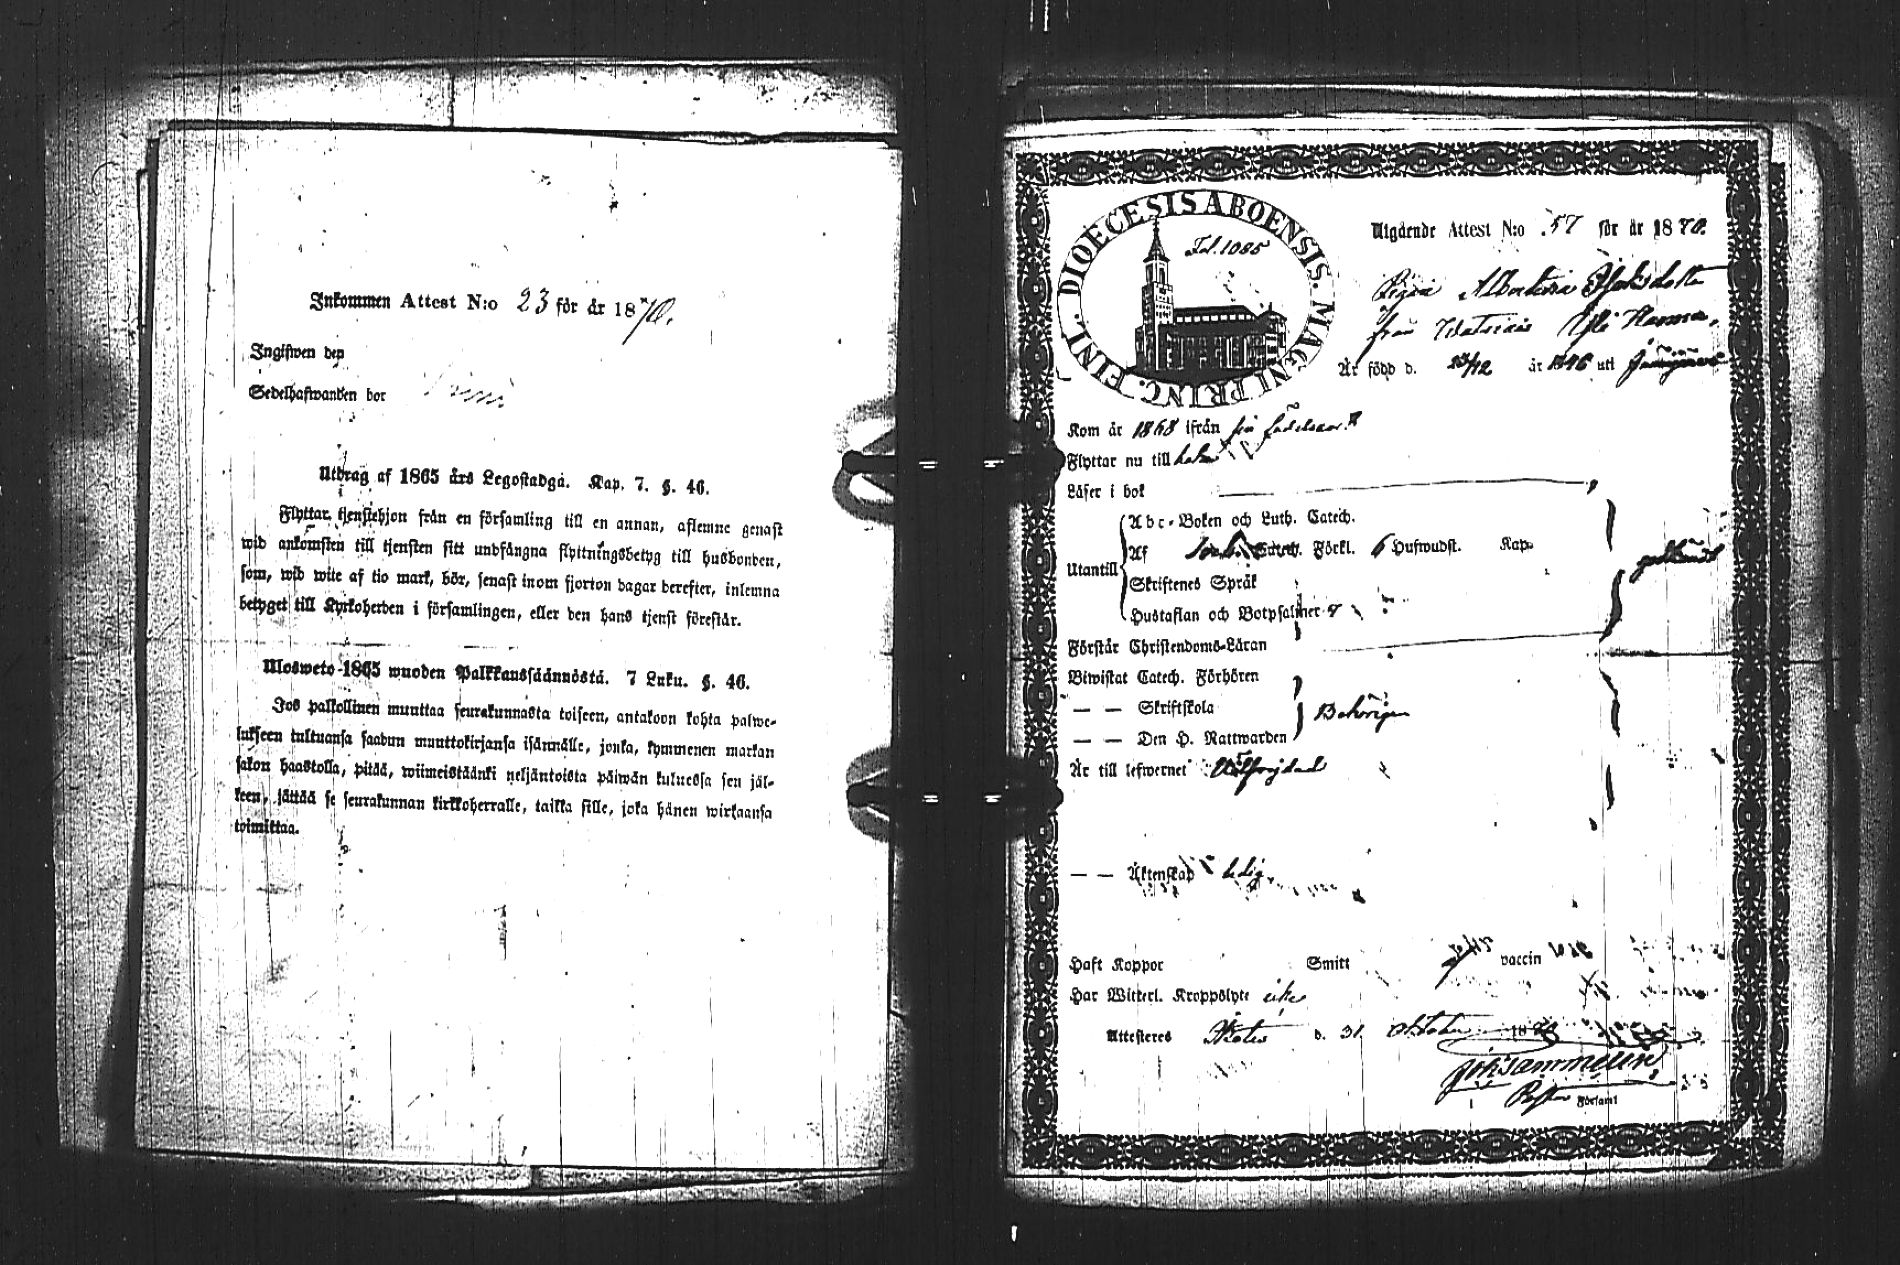 Inkommen Attest N:o 23 för år 1870.
Ingifwen den
Sedelhafwanden bor
Utdrag af 1865 års Legostadga. Kap. 7. §. 46.
Flyttar tjenstehjon från en församling till en annan, aflemne genast
wid ankomsten till tjensten sitt undfångna flyttningsbetyg till husbonden,
som, wid wite af tio mark, bör, senast inom fjorton dagar derefter, inlemna
betyget till Kyrkoherden i församlingen, eller den hans tjenst förestår.
Ulosweto 1865 wuoden Palkkaussäännöstä. 7 Luku. §. 46.
Jos palkollinen muuttaa seurakunnasta toiseen, antakoon kohta palwe-
lukseen tultuansa saadun muuttokirjansa isännälle, jonka, kymmenen markan
sakon haastolla, pitää, wiimeistäänki neljäntoista päiwän kuluessa sen jäl-
keen, jättää se seurakunnan kirkkoherralle, taikka sille, joka hänen wirkaansa
toimittaa.
DIOECESIS ABOENSIS. MAGNI PRINC. FINL.
Fol. 1085
Utgående Attest N:o 57 för år 1870.
Pigan Albertina
från
Är född d. 23/12 år 1846 uti
Kom år 1868 ifrån sin
Flyttar nu till
Läser i bok
Utantill
Abc-Boken och Luth. Catech.
Af Catech. Förkl. 6 Hufwudst. Kap.
Skriftenes Språk
Hustaflan och Botpsalmer
Förstår Christendoms-Läran
Biwistat Catech. Förhören
— — Skriftskola
— — Den H. Nattwarden
Behörigen
Är till lefwernet Oklanderlig
— — Äktenskap ledig
Haft Koppor Smitt vaccin
Har Witterl. Kroppslyte icke
Attesteras d. 31 Oktober 1870
Joh Sammelin,
Pastor Församl